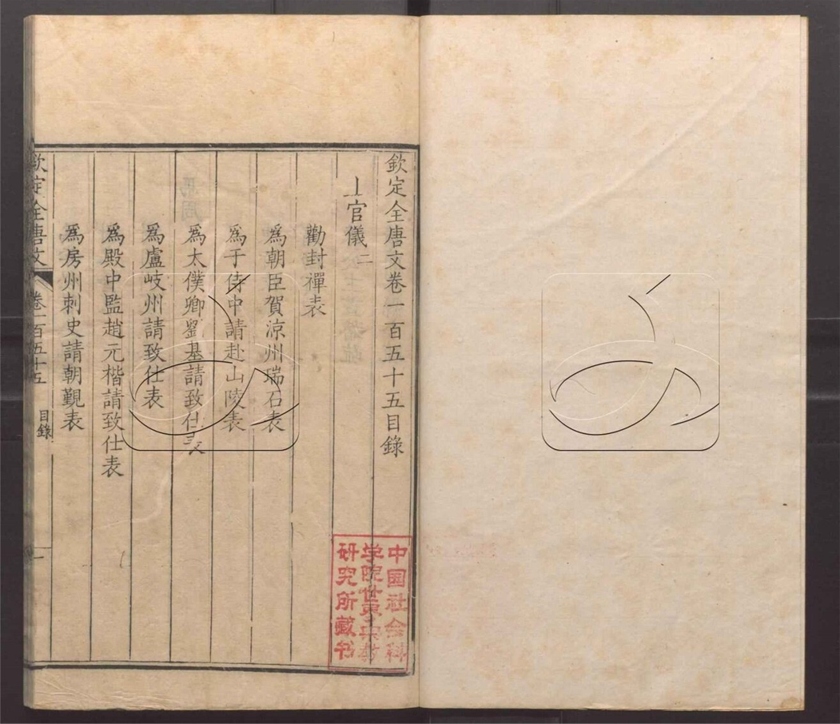 欽定全唐文卷一百五十五目錄
上官儀二
勸封禪表
為朝臣賀涼州瑞石表
為于侍中請赴山陵表
為太僕卿劉基請致仕表
為盧岐州請致仕表
為殿中監趙元楷請致仕表
為房州刺史請朝覲表
欽定全唐文 卷一百五十五 目錄 一
中国社会科
学院世界宗教
研究所藏书